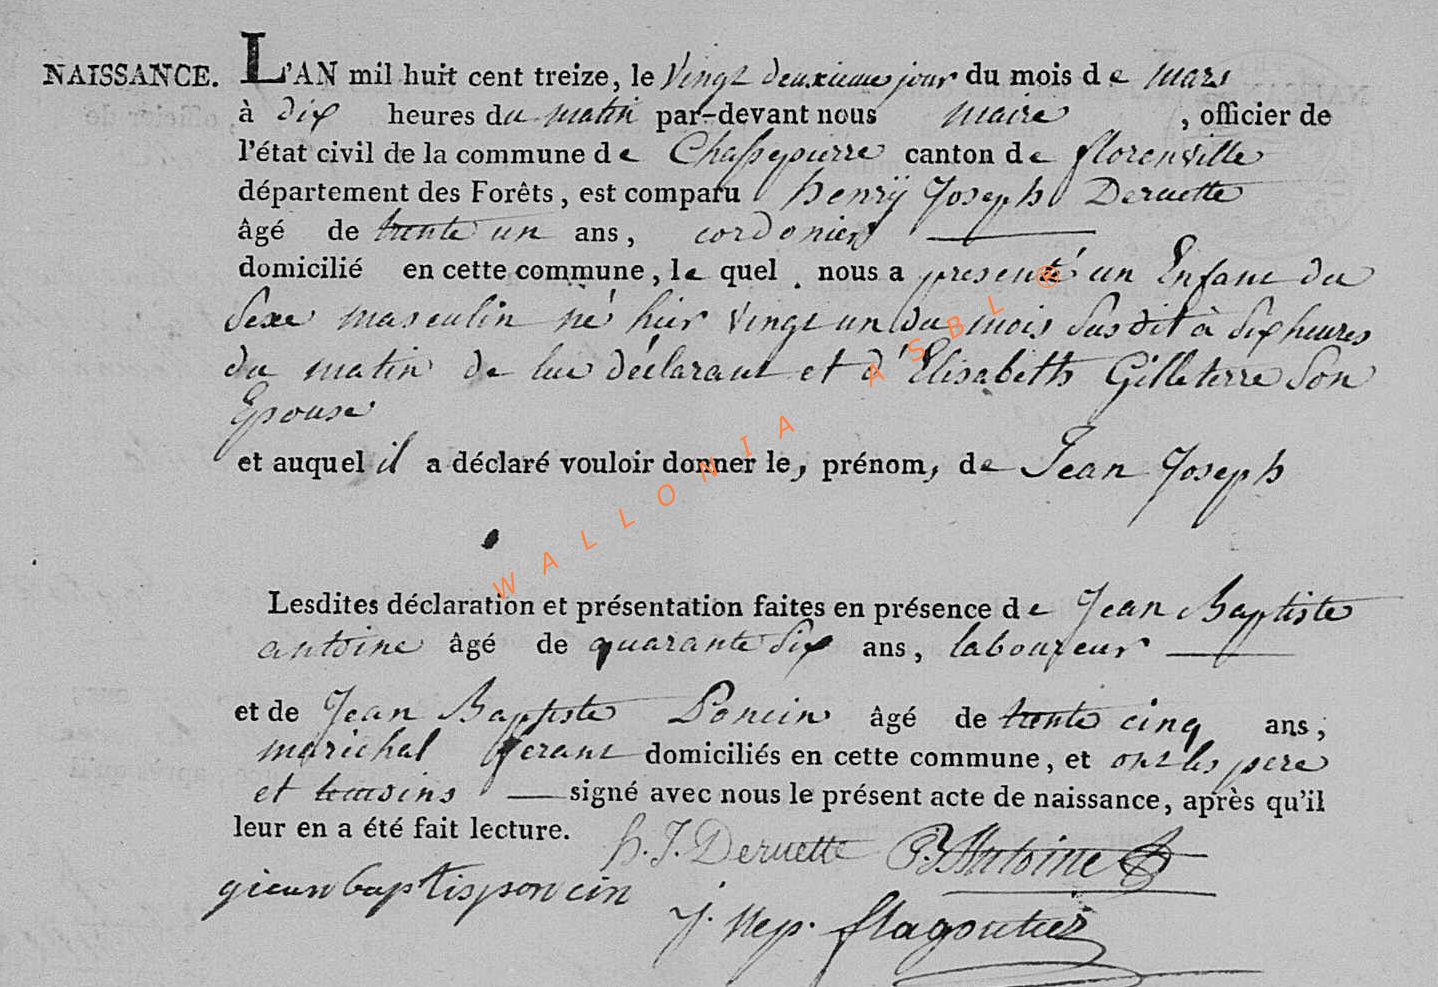 NAISSANCE. L'AN mil huit cent treize, le Vingt deuxieme jour du mois de mars
à dix heures du matin par-devant nous maire , officier de
l'état civil de la commune de Chassepierre canton de florenville
département des Forêts, est comparu henrÿ Joseph Deruette
âgé de trente un ans, cordonier
domicilié en cette commune, le quel nous a presenté un Enfant du
Sexe masculin né hier Vingt un du mois Susdit à Six heures
du matin de lui déclarant et d'Elisabeth Gilleterre Son
Epouse
et auquel il a déclaré vouloir donner le, prénom, de Jean Joseph
Lesdites déclaration et présentation faites en présence de Jean Baptiste
antoine âgé de quarante Six ans, laboureur
et de Jean Baptiste Poncin âgé de trente cinq ans,
marichal ferant domiciliés en cette commune, et ont les pere
et temoins signé avec nous le présent acte de naissance, après qu'il
leur en a été fait lecture.
h. J. Deruette Antoine
gieun baptis poncin
J. Nep. flagontier
WALLONIA ASBL ®